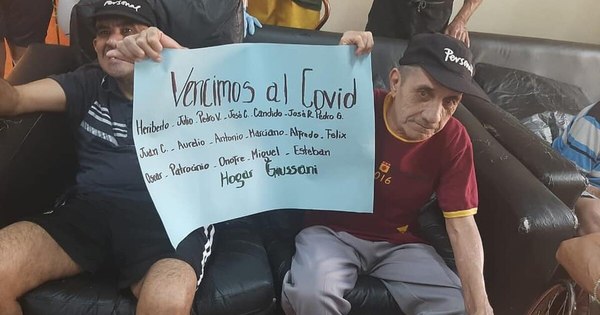 Personal
Personal
Vencimos al Covid
Heriberto - Julio - Pedro V. - José C. Candido - José R. Pedro G.
Juan C. - Aurelio - Antonio - Marciano - Alfredo - Felix
Oscar - Patrocinio - Onofre - Miguel - Esteban
Hogar Giussani
2016